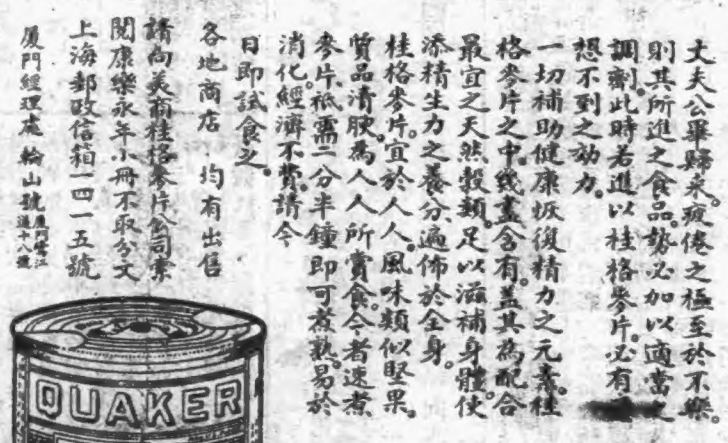 丈夫公畢歸來。疲倦之極至於不樂。
則其所進之食品。勢必加以適當之
調劑。此時若進以桂格麥片。必有
想不到之効力。
一切補助健康恢復精力之元素。桂
格麥片之中。幾盡含有。蓋其為配合
最宜之天然穀類。足以滋補身體。使
添精生力之養分。遍佈於全身。
桂格麥片。宜於人人。風味類似堅果。
質品清腴。為人人所賞食。今者速煮
麥片。祇需二分半鐘即可煮熟。易於
消化。經濟不費。請今
日即試食之。
各地商店 均有出售
請向美商桂格麥片公司索
閱康樂永年小冊不取分文
上海郵政信箱一四一五號
厦門經理處 輪山號
QUAKER